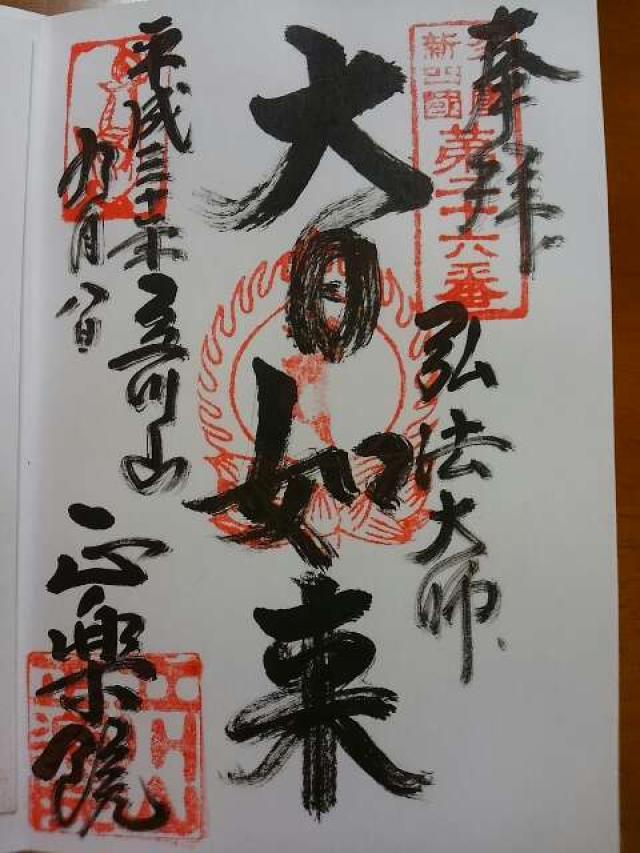 奉拝
新四國
第二十六番
弘法大師
大日如来
平成三十年
九月八日
立川山
正楽院